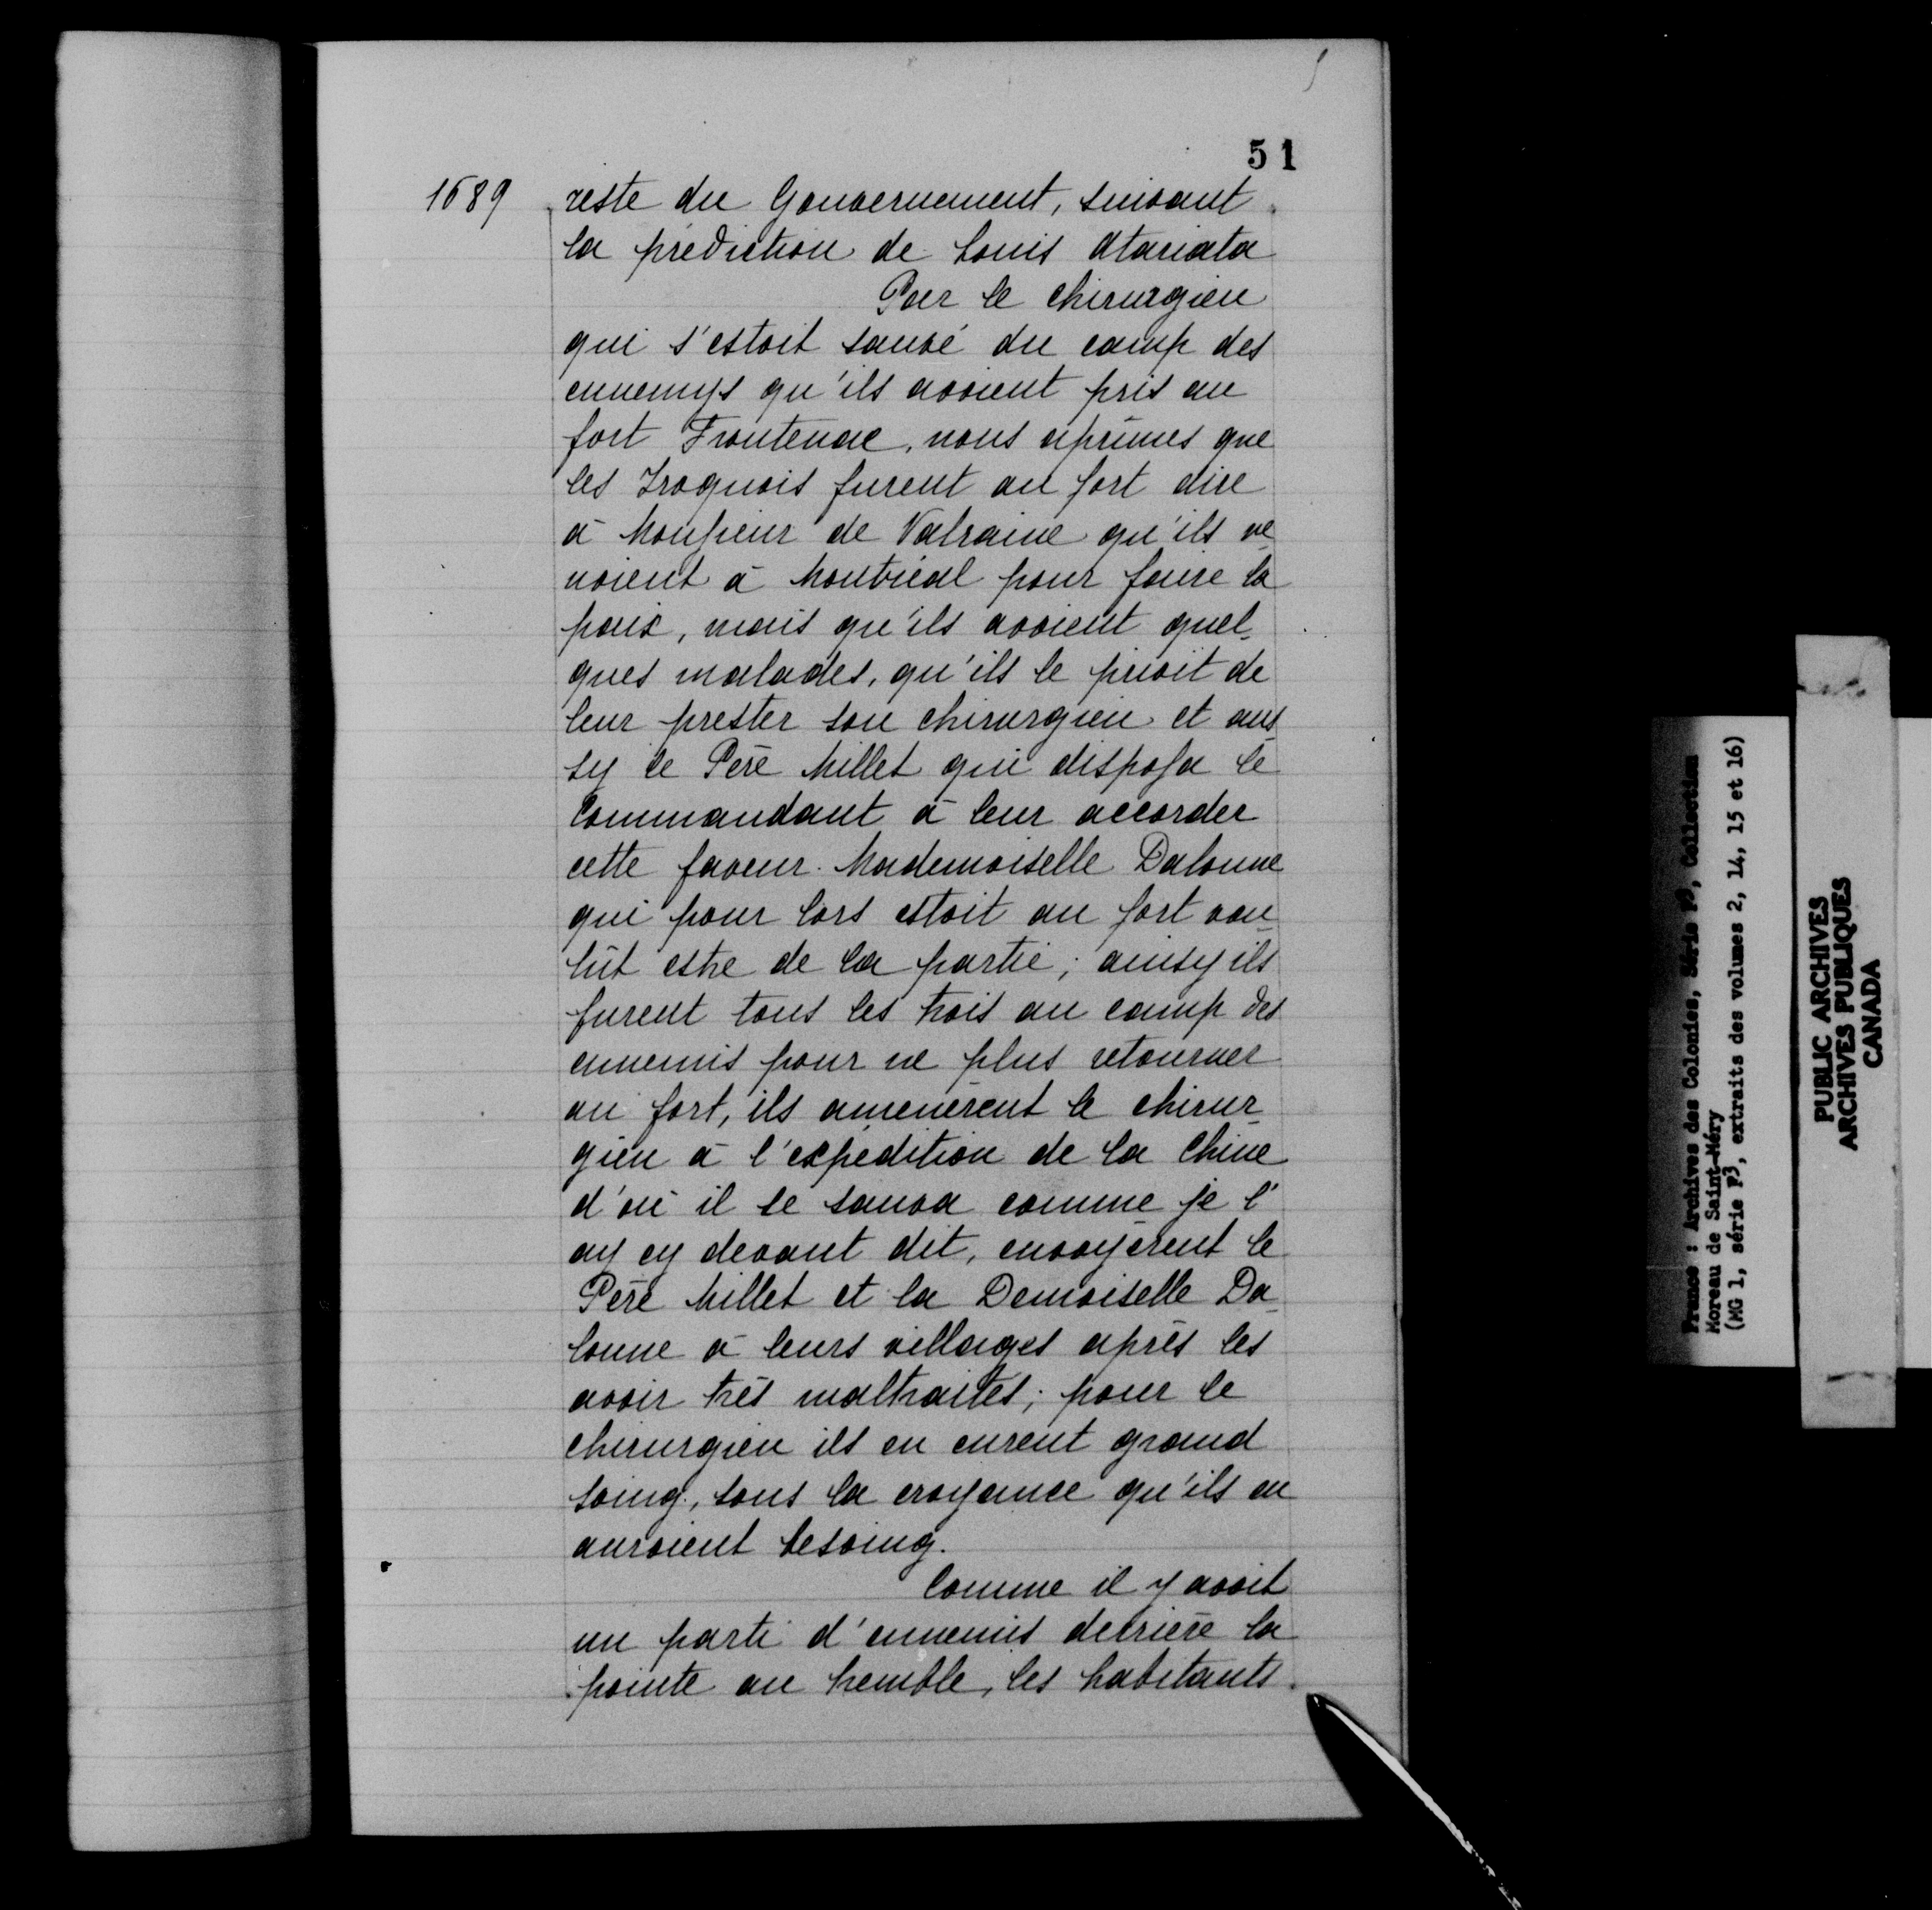 51
1689 reste du Gouvernement, suivant
la prédiction de Louis Atariata
Par le chirurgien
qui s'estoit sauvé du camp des
ennemys qu'ils avoient pris au
fort Frontenac, nous aprîmes que
les Iroquois furent au fort dire
à Monsieur de Valraine qu'ils ve
noient à Montréal pour faire la
paix, mais qu'ils avoient quel
ques malades, qu'ils le prioit de
leur prester son chirurgien et aus
sy le Père Millet qui disposa le
Commandant à leur accorder
cette faveur. Mademoiselle Dalonne
qui pour lors estoit au fort vou
lût estre de la partie; ainsy ils
furent tous les trois au camp des
ennemis pour ne plus retourner
au fort, ils amenèrent le chirur
gien à l'expédition de la Chine
d'où il se sauva comme je l'
ay cy devant dit, envoyèrent le
Père Millet et la Demoiselle Da
lonne à leurs villages après les
avoir très maltraités; pour le
chirurgien ils en eurent grand
soing, sous la croyance qu'ils en
auroient besoing.
Comme il y avoit
un parti d'ennemis derrière la
pointe au tremble, les habitants
France : Archives des Colonies, Série F3, Collection
Moreau de Saint-Méry
(MG 1, série F3, extraits des volumes 2, 14, 15 et 16)
PUBLIC ARCHIVES
ARCHIVES PUBLIQUES
CANADA